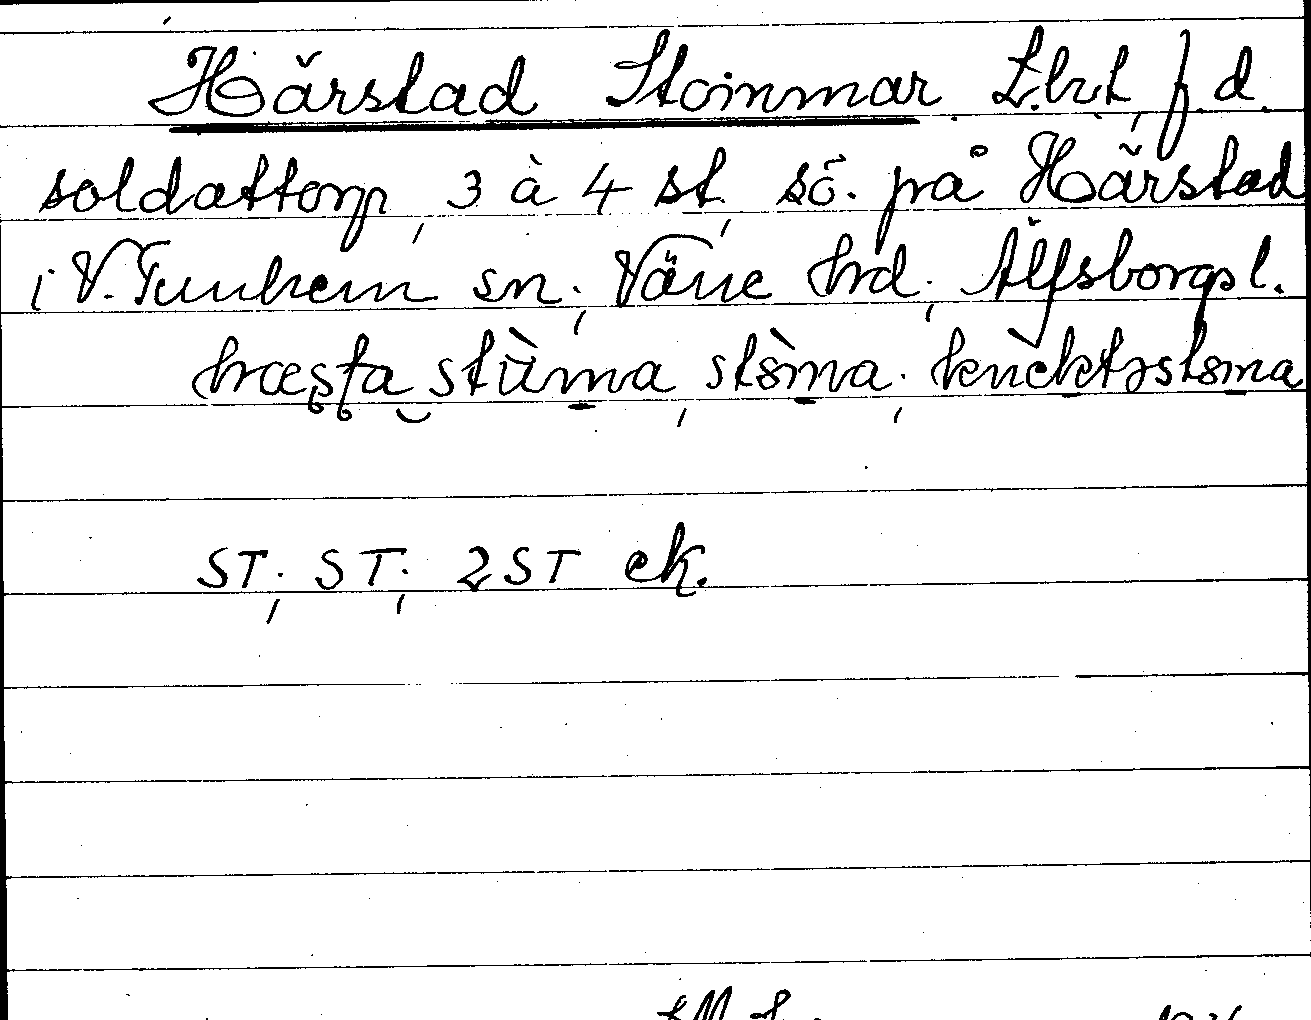 Härstad Stommar. Lht, f.d.
soldattorp, 3 à 4 st, sö. på Härstad
i V. Tunhem sn; Väne hrd; Älfsborgs l.
hæșța stùma, stòma; knècktəstoma
ST; ST; 2 ST ek.